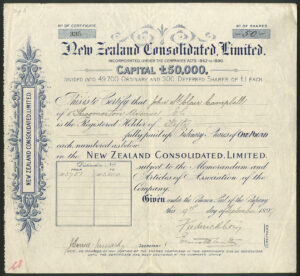 No OF CERTIFICATE
No OF SHARES
335
-50-
New Zealand Consolidated, Limited.
INCORPORATED UNDER THE COMPANIES ACTS 1862 to 1890.
CAPITAL £50,000.
DIVIDED INTO 49,700 ORDINARY AND 300 DEFERRED SHARES OF £1 EACH.
This is to Certify that John McLean Campbell
of Throgmorton Avenue E.C.
is the Registered Holder of Fifty
fully paid up Ordinary Shares of One Pound
each numbered as below
in the NEW ZEALAND CONSOLIDATED, LIMITED.
subject to the Memorandum and
Articles of Association of the
Company.
Given under the Common Seal of the Company
this day of September 189
Secretary
NEW ZEALAND CONSOLIDATED, LIMITED.